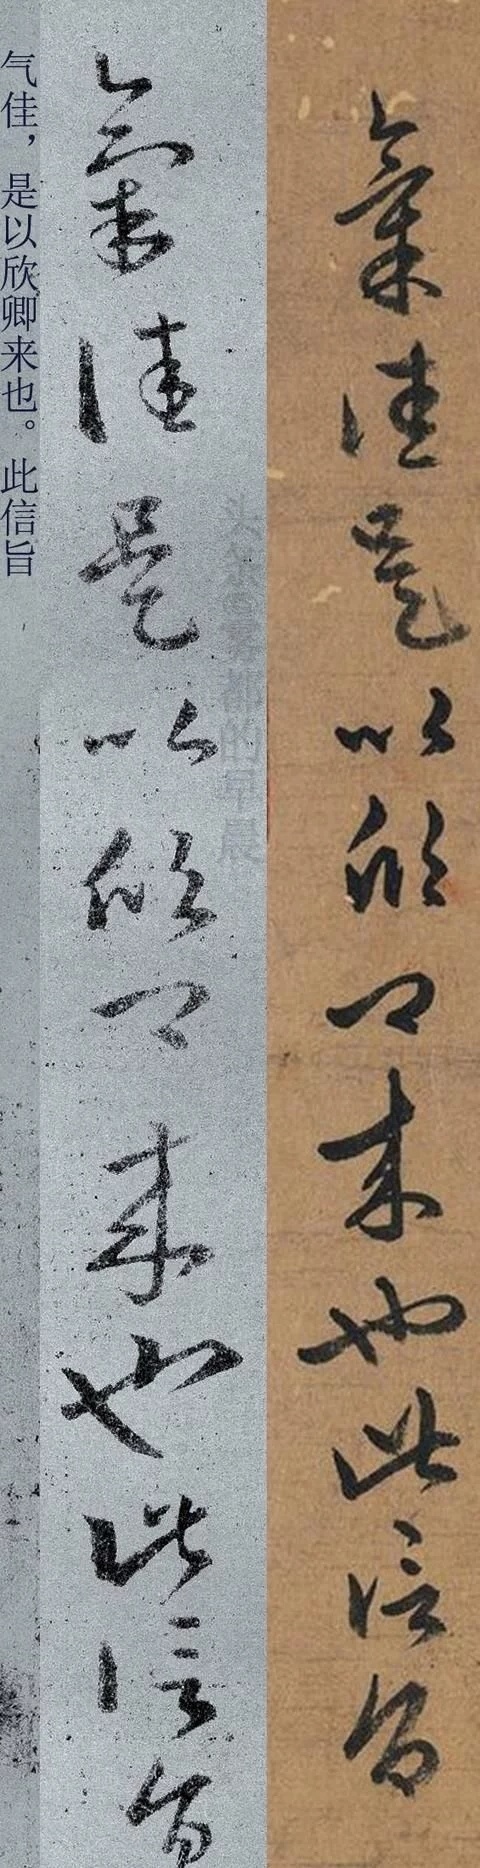 气佳，是以欣卿来也。此信旨
氣佳是以欣卿来也此信旨
头条
都的早晨
氣佳是以欣卿来也此信旨